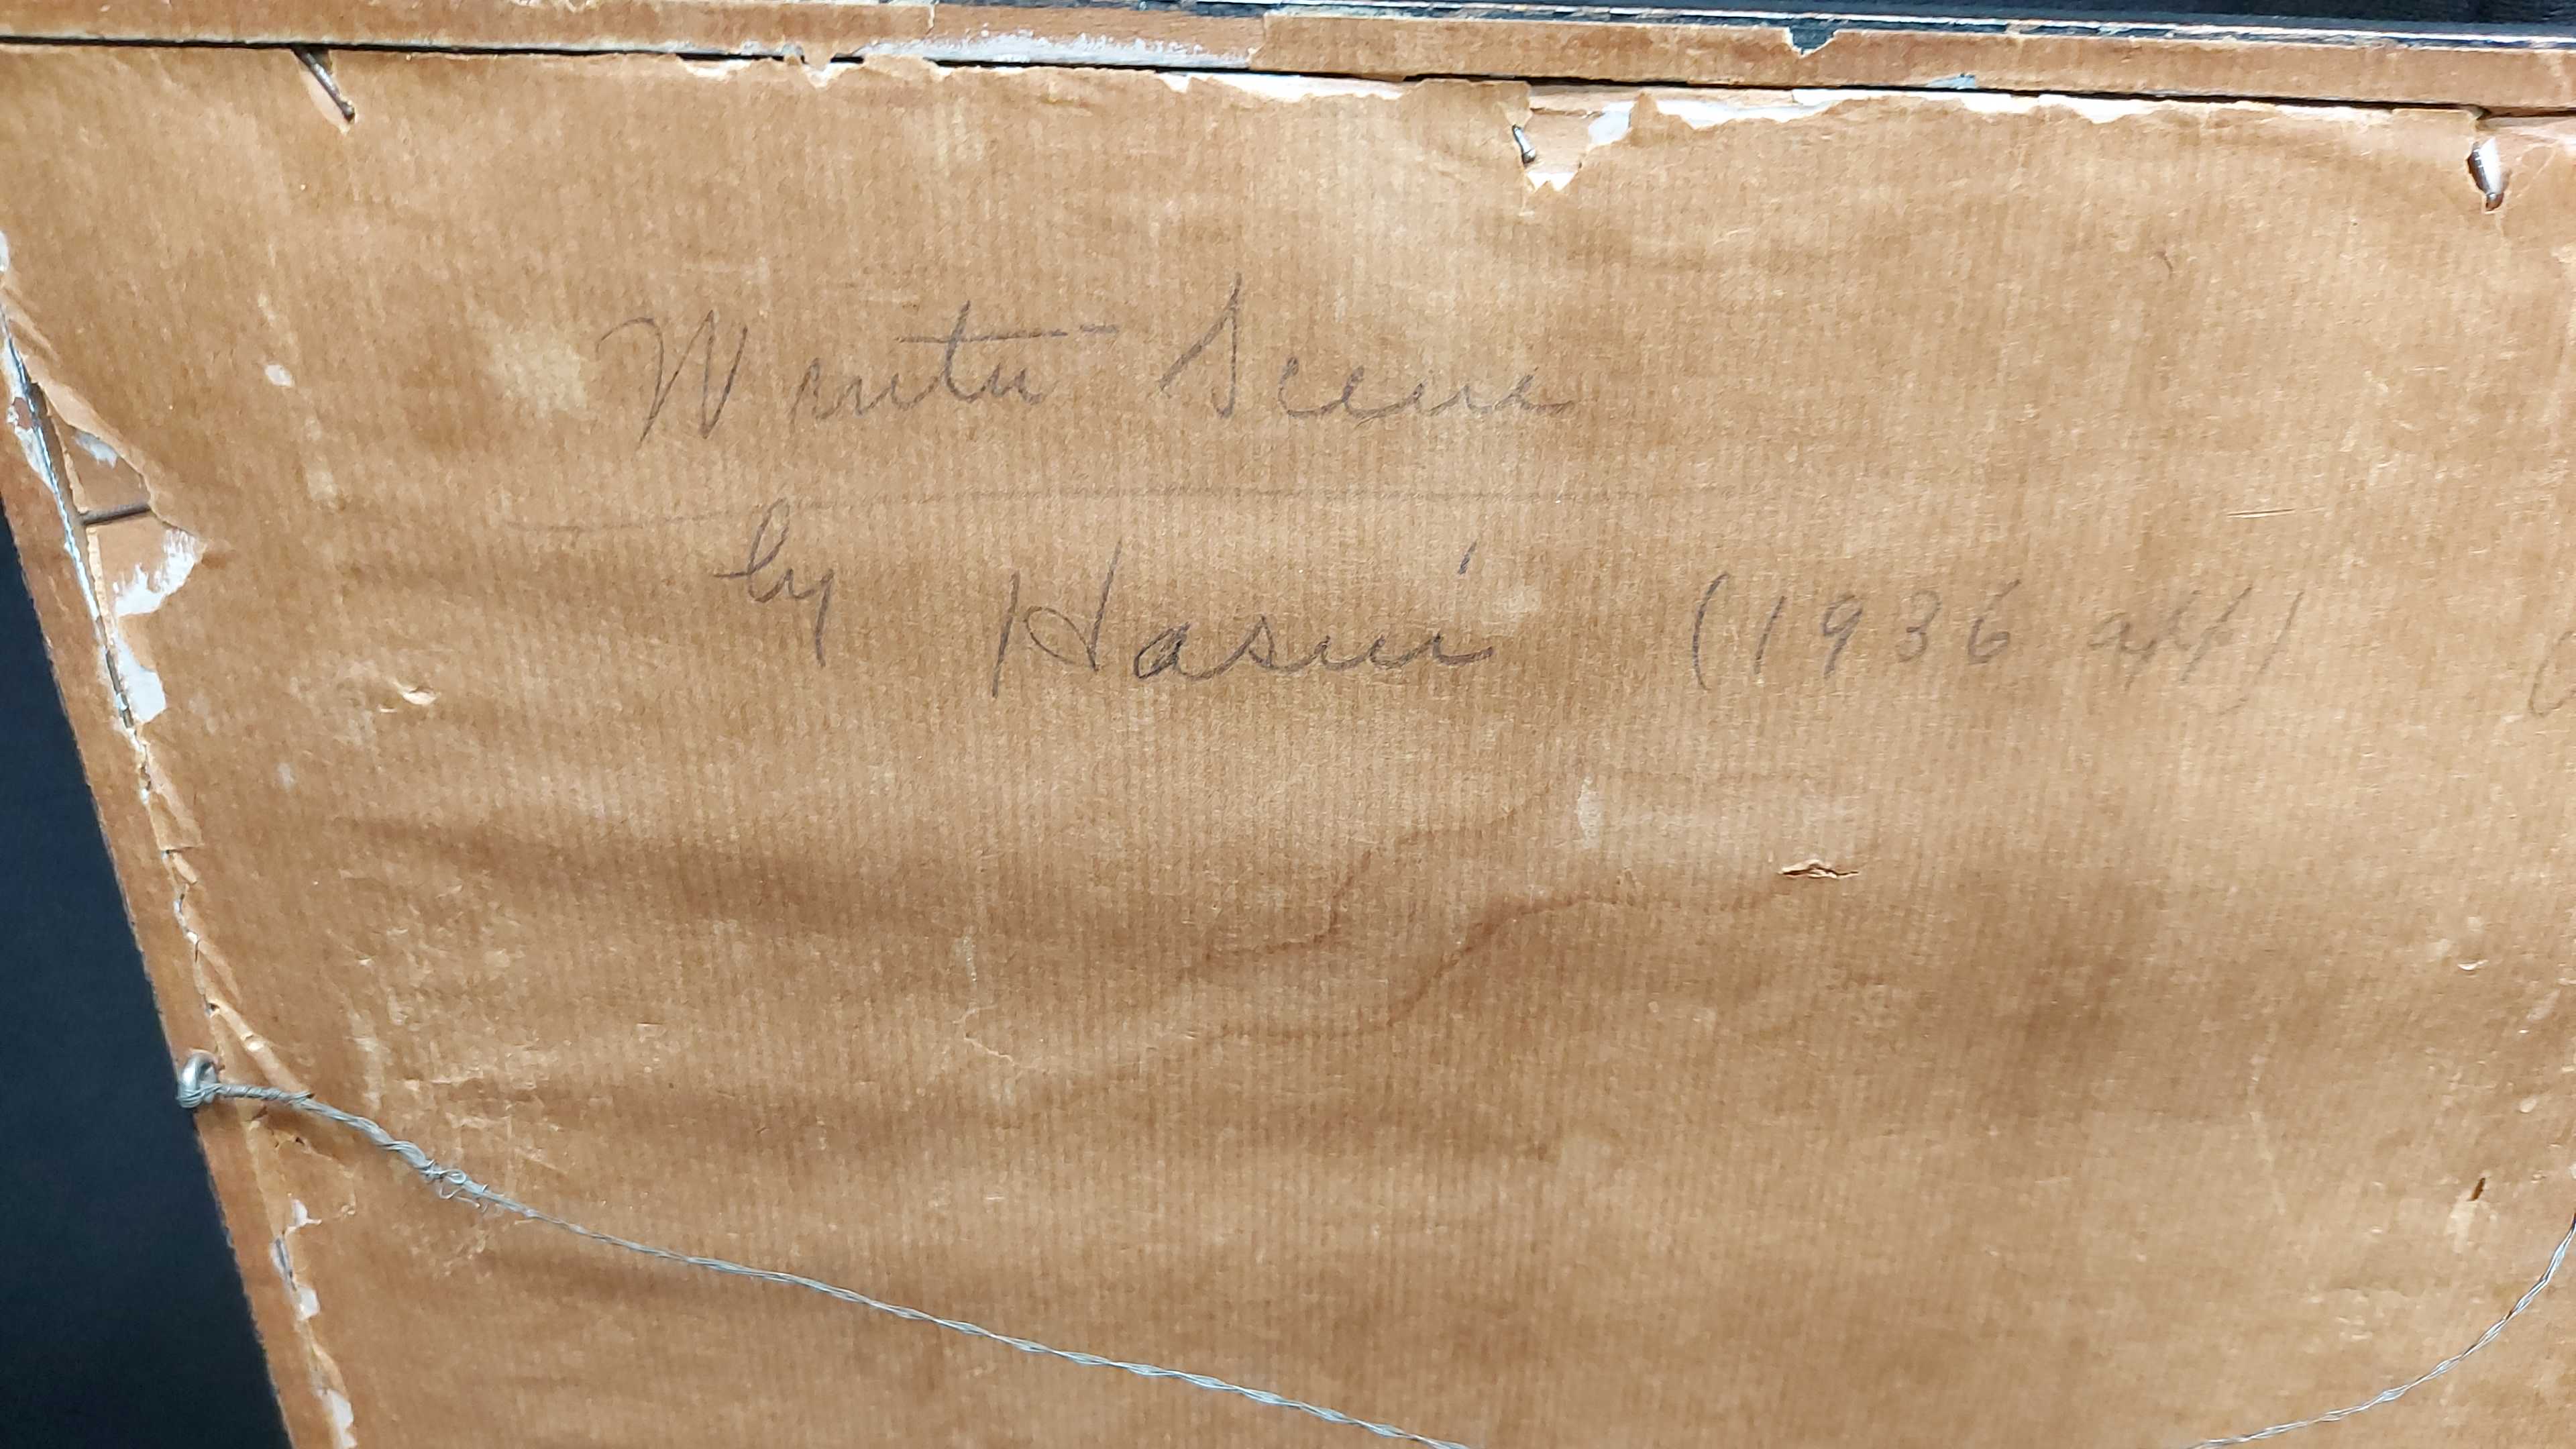 Winter Scene
by Hasui (1936